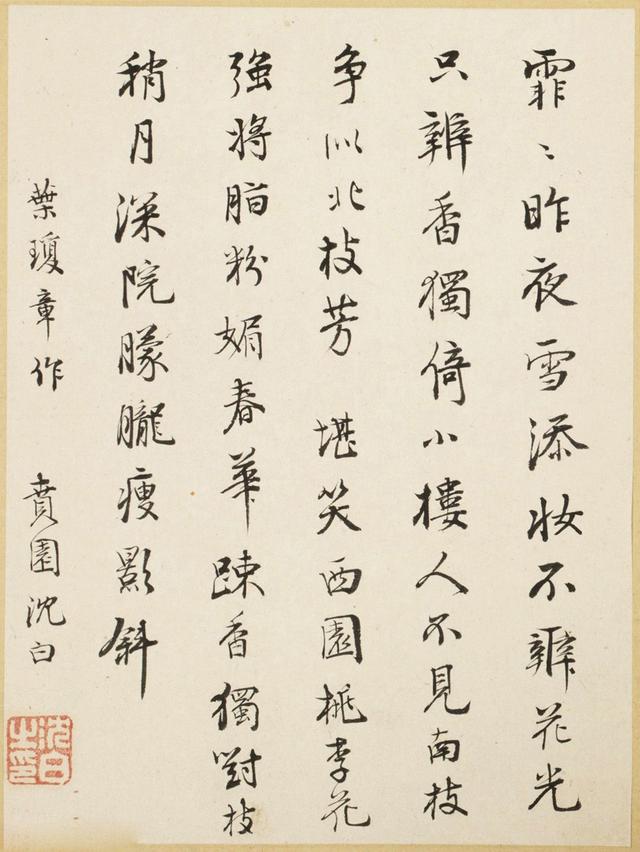 霏〻昨夜雪添妝不辧花光
只辧香獨倚小樓人不見南枝
争似北枝芳　堪笑西園桃李花
強將脂粉媚春華踈香獨對枝
稍月深院朦朧瘦影斜
葉瓊章作　賁園沈白
沈白之印